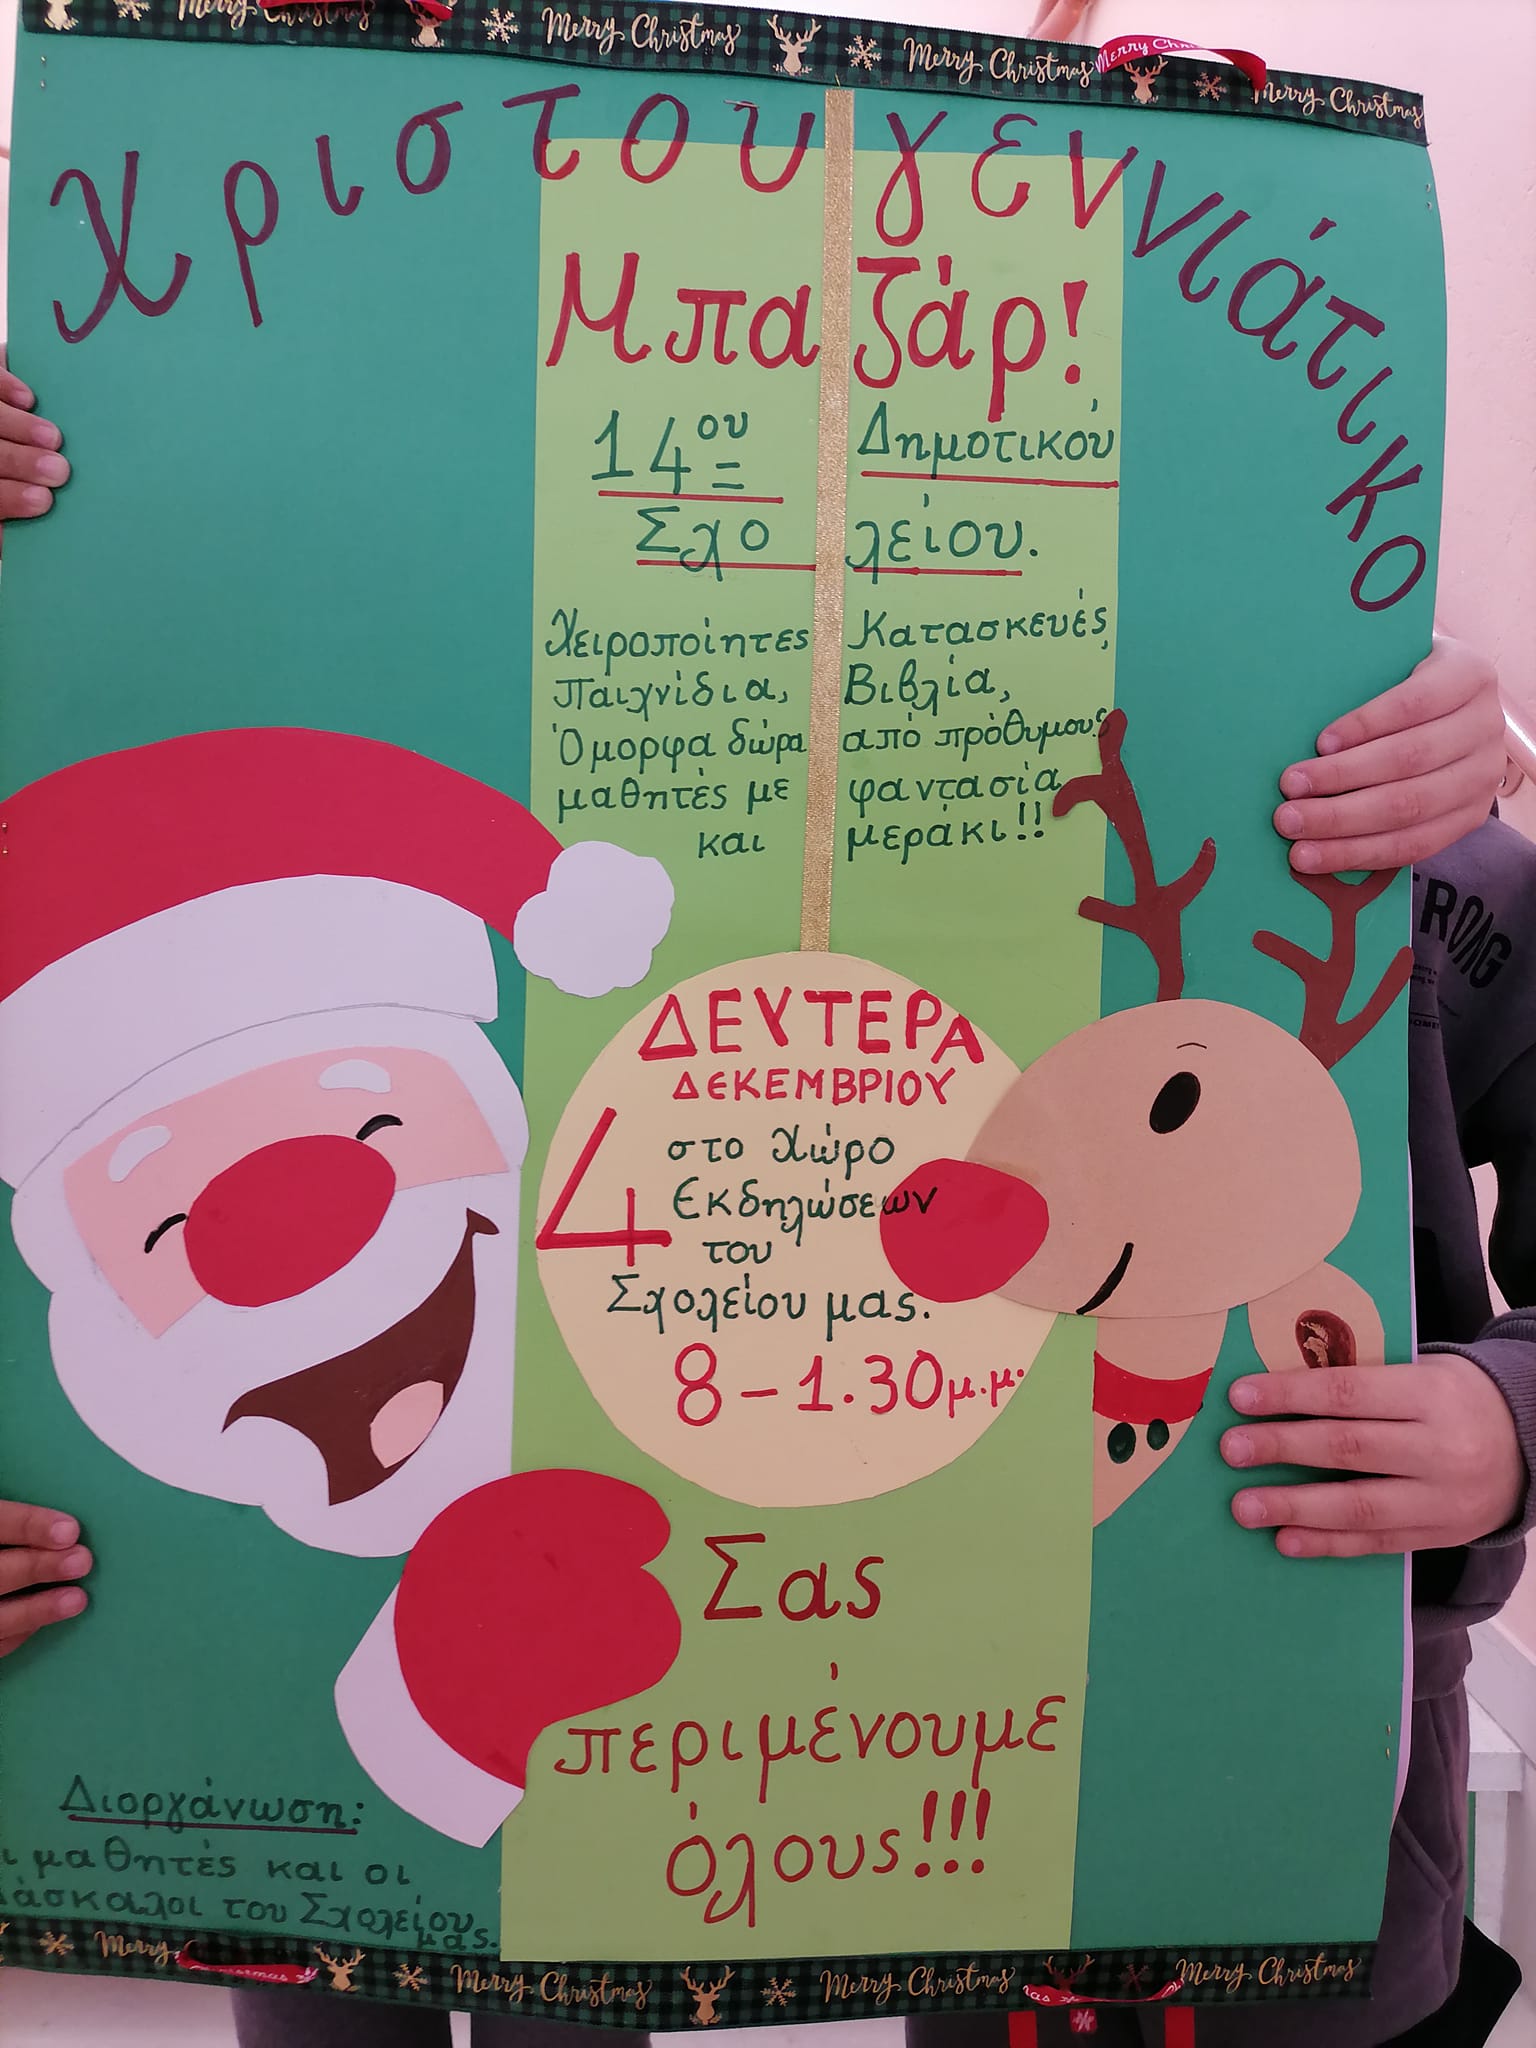 Merry Christmas Merry Christmas Merry Christmas Merry Christmas
Χριστουγεννιάτικο
Μπαζάρ!
14ου Δημοτικού
Σχολείου.
Χειροποίητες Κατασκευές,
Παιχνίδια, Βιβλία,
Όμορφα δώρα από πρόθυμους
μαθητές με φαντασία
και μεράκι!!
ΔΕΥΤΕΡΑ
ΔΕΚΕΜΒΡΙΟΥ
4
στο Χώρο
Εκδηλώσεων
του
Σχολείου μας.
8-1.30μ.μ.
Σας
περιμένουμε
όλους!!!
Διοργάνωση:
ι μαθητές και οι
άσκαλοι του Σχολείου
μας.
Merry Merry Christmas Merry Christmas Merry Christmas